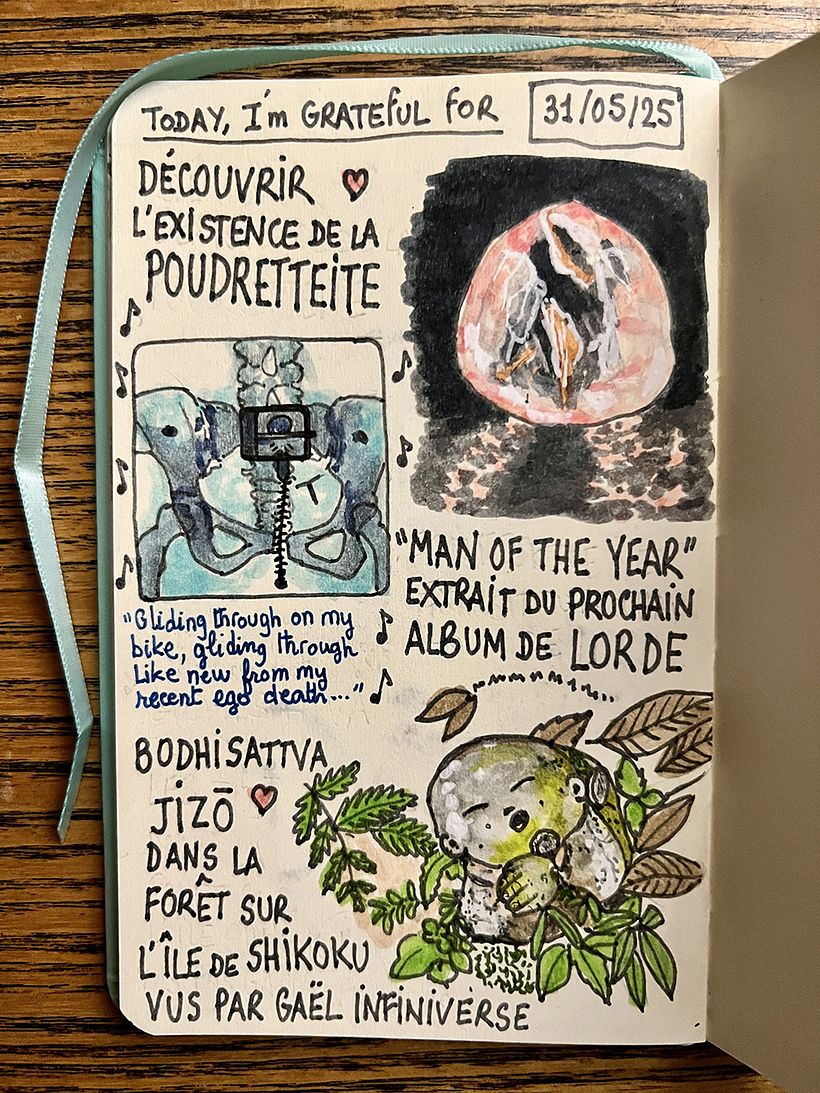 TODAY, I'm GRATEFUL FOR
31/05/25
DÉCOUVRIR
L'EXISTENCE DE LA
POUDRETTEITE
"MAN OF THE YEAR"
EXTRAIT DU PROCHAIN
ALBUM DE LORDE
"Gliding through on my
bike, gliding through
Like new from my
recent ego death..."
BODHISATTVA
JIZŌ
DANS LA
FORÊT SUR
L'ÎLE DE SHIKOKU
VUS PAR GAËL INFINIVERSE